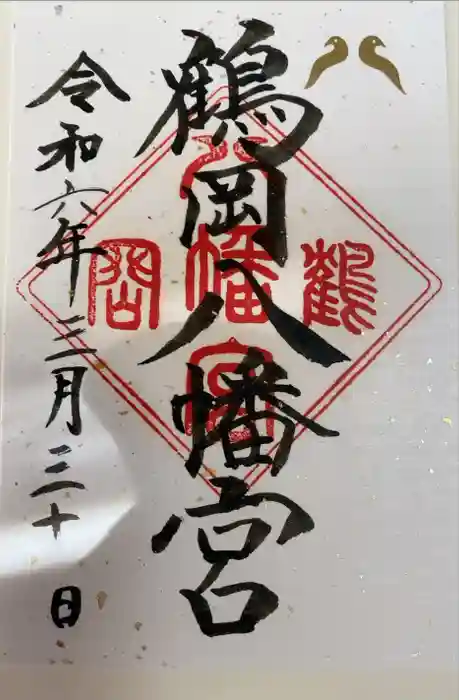 鶴岡八幡宮
令和六年三月三十日
鶴
八
幡
宮
岡